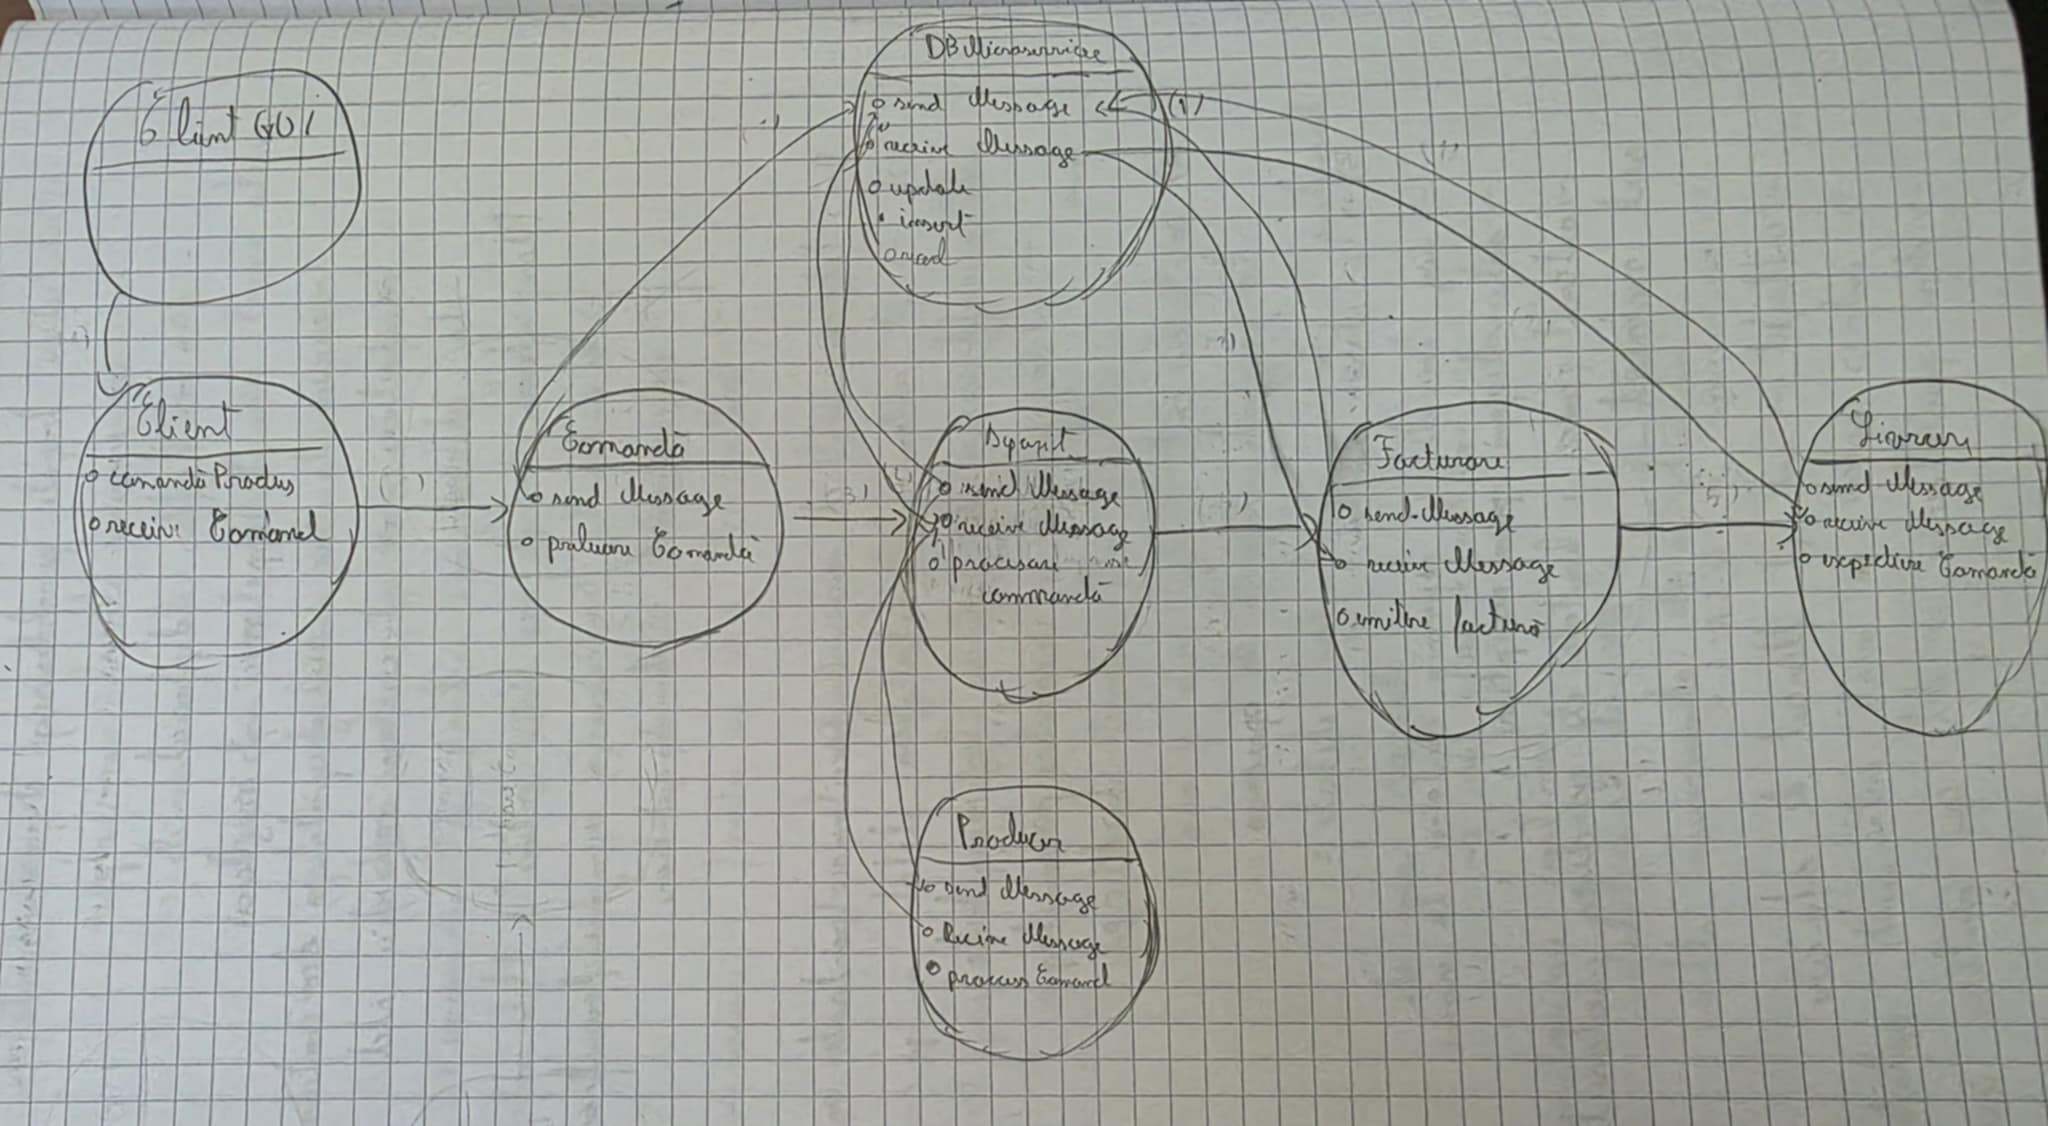 DB Microservice
send Message (1)
receive Message
update
insert
read
Client GUI
Client
comandă Produs
receive Comand
Comandă
send Message
preluare Comandă
send Message
receive Message
procesare
commandă
Facturare
send Message
receive Message
emitere factură
Livrare
send Message
receive Message
expediere Comandă
Producer
send Message
Recive Message
process Comand